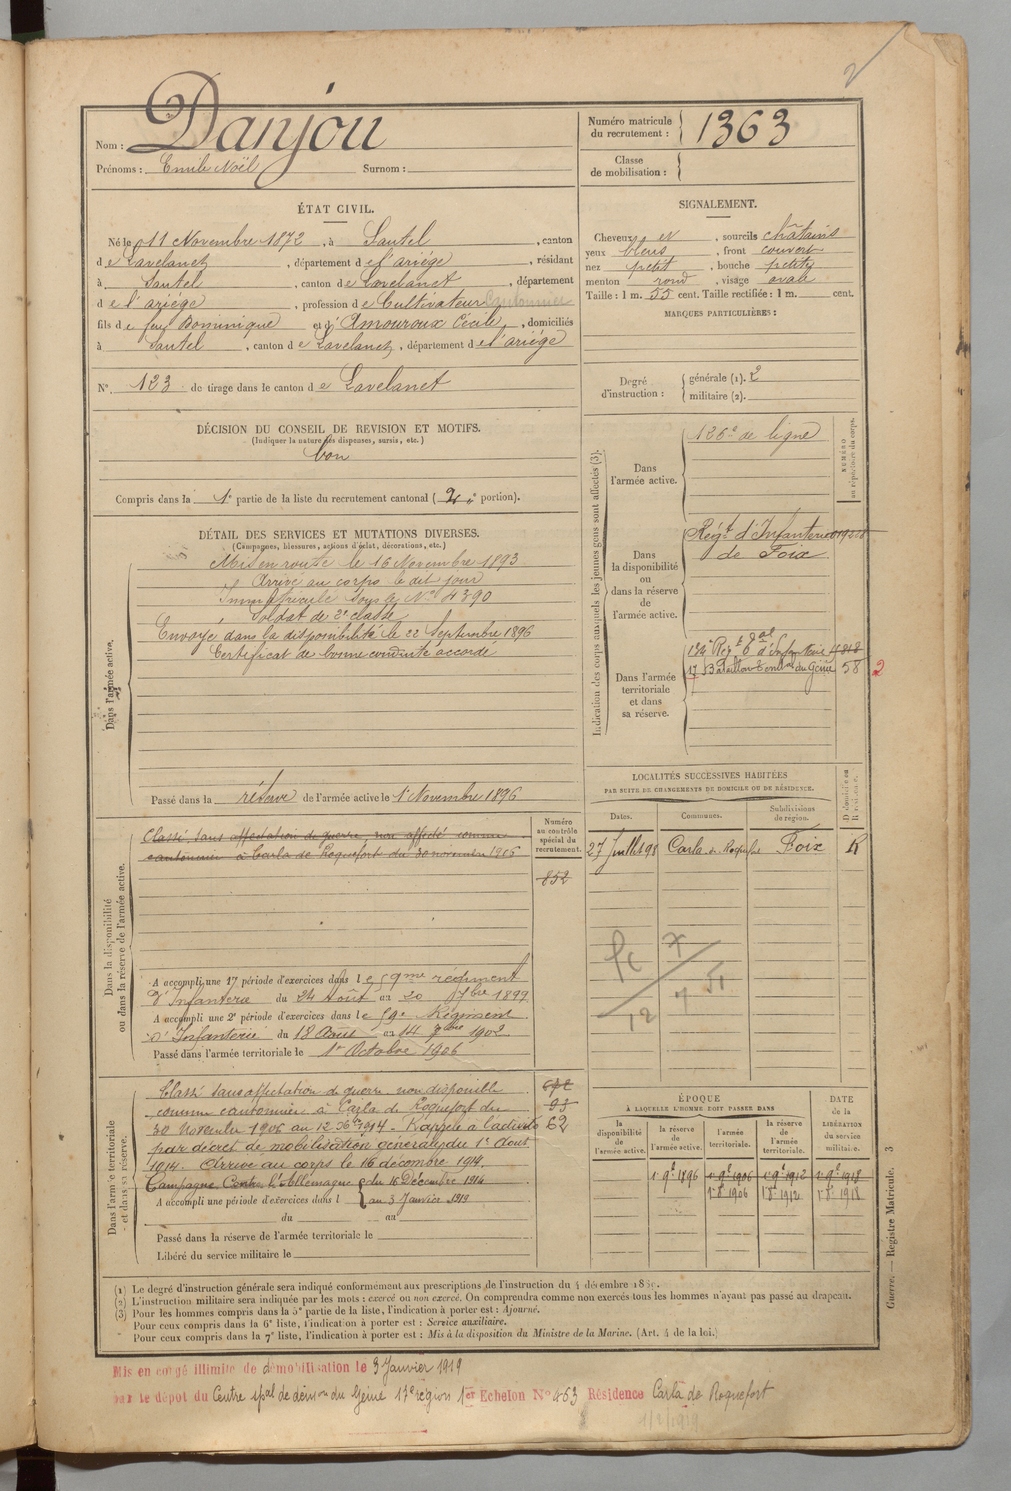 2
Nom : Danjou
Prénoms : Emile Noël Surnom :
Numéro matricule du recrutement : 1363
Classe de mobilisation :
ÉTAT CIVIL.
Né le 11 Novembre 1872, à Sautel, canton
de Lavelanet, département de l'ariége, résidant
à Sautel, canton de Lavelanet, département
de l'ariége, profession de Cultivateur Cantonnier
fils de feu Dominique et d'Amouroux Cécile, domiciliés
à Sautel, canton de Lavelanet, département de l'ariége
N° 123 de tirage dans le canton de Lavelanet
SIGNALEMENT.
Cheveux et, sourcils châtains
yeux bleus, front couvert
nez petit, bouche petite
menton rond, visage ovale
Taille : 1 m. 55 cent. Taille rectifiée : 1 m. cent.
MARQUES PARTICULIÈRES :
Degré d'instruction : générale (1). 2
militaire (2).
DÉCISION DU CONSEIL DE REVISION ET MOTIFS.
(Indiquer la nature des dispenses, sursis, etc.)
bon
Compris dans la 1e partie de la liste du recrutement cantonal (2e portion).
DÉTAIL DES SERVICES ET MUTATIONS DIVERSES.
(Campagnes, blessures, actions d'éclat, décorations, etc.)
Dans l'armée active.
Mis en route le 16 Novembre 1893
Arrivé au corps le dit jour
Immatriculé sous le N° 4390
Soldat de 2e classe
Envoyé dans la disponibilité le 22 Septembre 1896
Certificat de bonne conduite accordé
Passé dans la réserve de l'armée active le 1er Novembre 1896
Indication des corps auxquels les jeunes gens sont affectés (3).
NUMÉRO au répertoire du corps.
Dans l'armée active.
126e de ligne
Dans la disponibilité ou dans la réserve de l'armée active.
Régt d'Infanterie
de Foix
Dans l'armée territoriale et dans sa réserve.
134e Regt tal d'Infanterie
17 Bataillon du Génie 58 2
LOCALITÉS SUCCESSIVES HABITÉES
PAR SUITE DE CHANGEMENTS DE DOMICILE OU DE RÉSIDENCE.
Dates. Communes. Subdivisions de région. D domicile ou R résidence.
27 Juillet 98 Carla de Roquefort Foix R
Dans la disponibilité ou dans la réserve de l'armée active.
Numéro au contrôle spécial du recrutement.
Classé sans affectation de guerre, non affecté comme
cantonnier à Carla de Roquefort du 30 novembre 1906
852
A accompli une 1re période d'exercices dans le 59me régiment
d'Infanterie du 24 août au 20 7bre 1899
A accompli une 2e période d'exercices dans le 59e Régiment
d'Infanterie du 18 Août au 14 7bre 1902
Passé dans l'armée territoriale le 1er Octobre 1906
Dans l'armée territoriale et dans sa réserve.
Classé sans affectation de guerre non disponible
comme cantonnier à Carla de Roquefort du
30 Novembre 1906 au 12 Xbre 1914 - Rappelé à l'activité 62
par décret de mobilisation générale du 1er Août
1914. Arrivé au corps le 16 décembre 1914.
Campagne Contre l'Allemagne du 16 Décembre 1914
A accompli une période d'exercices dans l au 3 Janvier 1919
du au
Passé dans la réserve de l'armée territoriale le
Libéré du service militaire le
ÉPOQUE
À LAQUELLE L'HOMME DOIT PASSER DANS
la disponibilité de l'armée active. la réserve de l'armée active. l'armée territoriale. la réserve de l'armée territoriale.
DATE de la LIBÉRATION du service militaire.
1er 9e 1896 1er 9e 1906 1er 9e 1912 1er 9e 1918
1er 8e 1906 1er 8e 1912 1er 8e 1918
Guerre. — Registre Matricule. 3
(1) Le degré d'instruction générale sera indiqué conformément aux prescriptions de l'instruction du 4 décembre
(2) L'instruction militaire sera indiquée par les mots : exercé ou non exercé. On comprendra comme non exercés tous les hommes n'ayant pas passé au drapeau.
(3) Pour les hommes compris dans la 5e partie de la liste, l'indication à porter est : Ajourné.
Pour ceux compris dans la 6e liste, l'indication à porter est : Service auxiliaire.
Pour ceux compris dans la 7e liste, l'indication à porter est : Mis à la disposition du Ministre de la Marine. (Art. 4 de la loi.)
Mis en congé illimité de démobilisation le 3 Janvier 1919
par le dépot du Centre spal de démon du Génie 17e région 1er Echelon N° 463 Résidence Carla de Roquefort